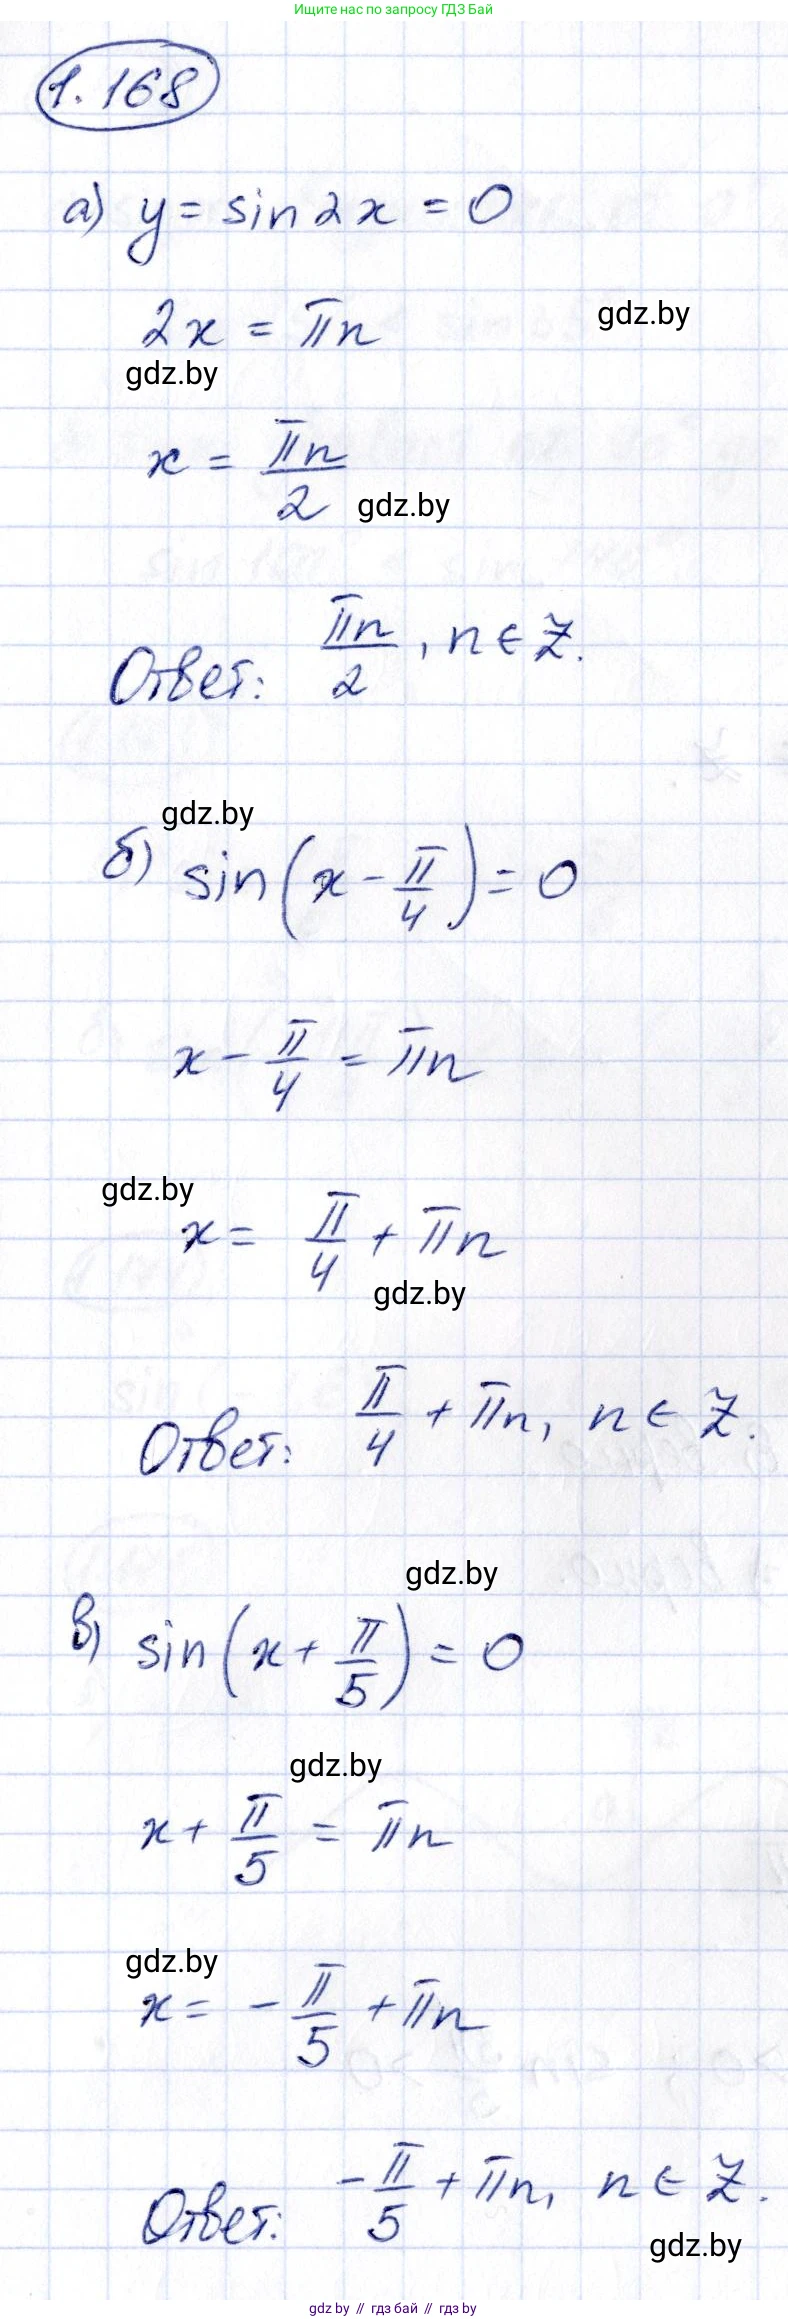 Ищите нас по запросу ГДЗ Бай
1.168
а) y = sin 2x = 0
gdz.by
2x = πn
gdz.by
x = πn/2
gdz.by
Ответ: πn/2, n ∈ Z.
gdz.by
б) sin(x - π/4) = 0
x - π/4 = πn
gdz.by
x = π/4 + πn
gdz.by
Ответ: π/4 + πn, n ∈ Z.
gdz.by
в) sin(x + π/5) = 0
gdz.by
x + π/5 = πn
gdz.by
x = -π/5 + πn
Ответ: -π/5 + πn, n ∈ Z.
gdz.by
gdz by // гдз бай // гдз by